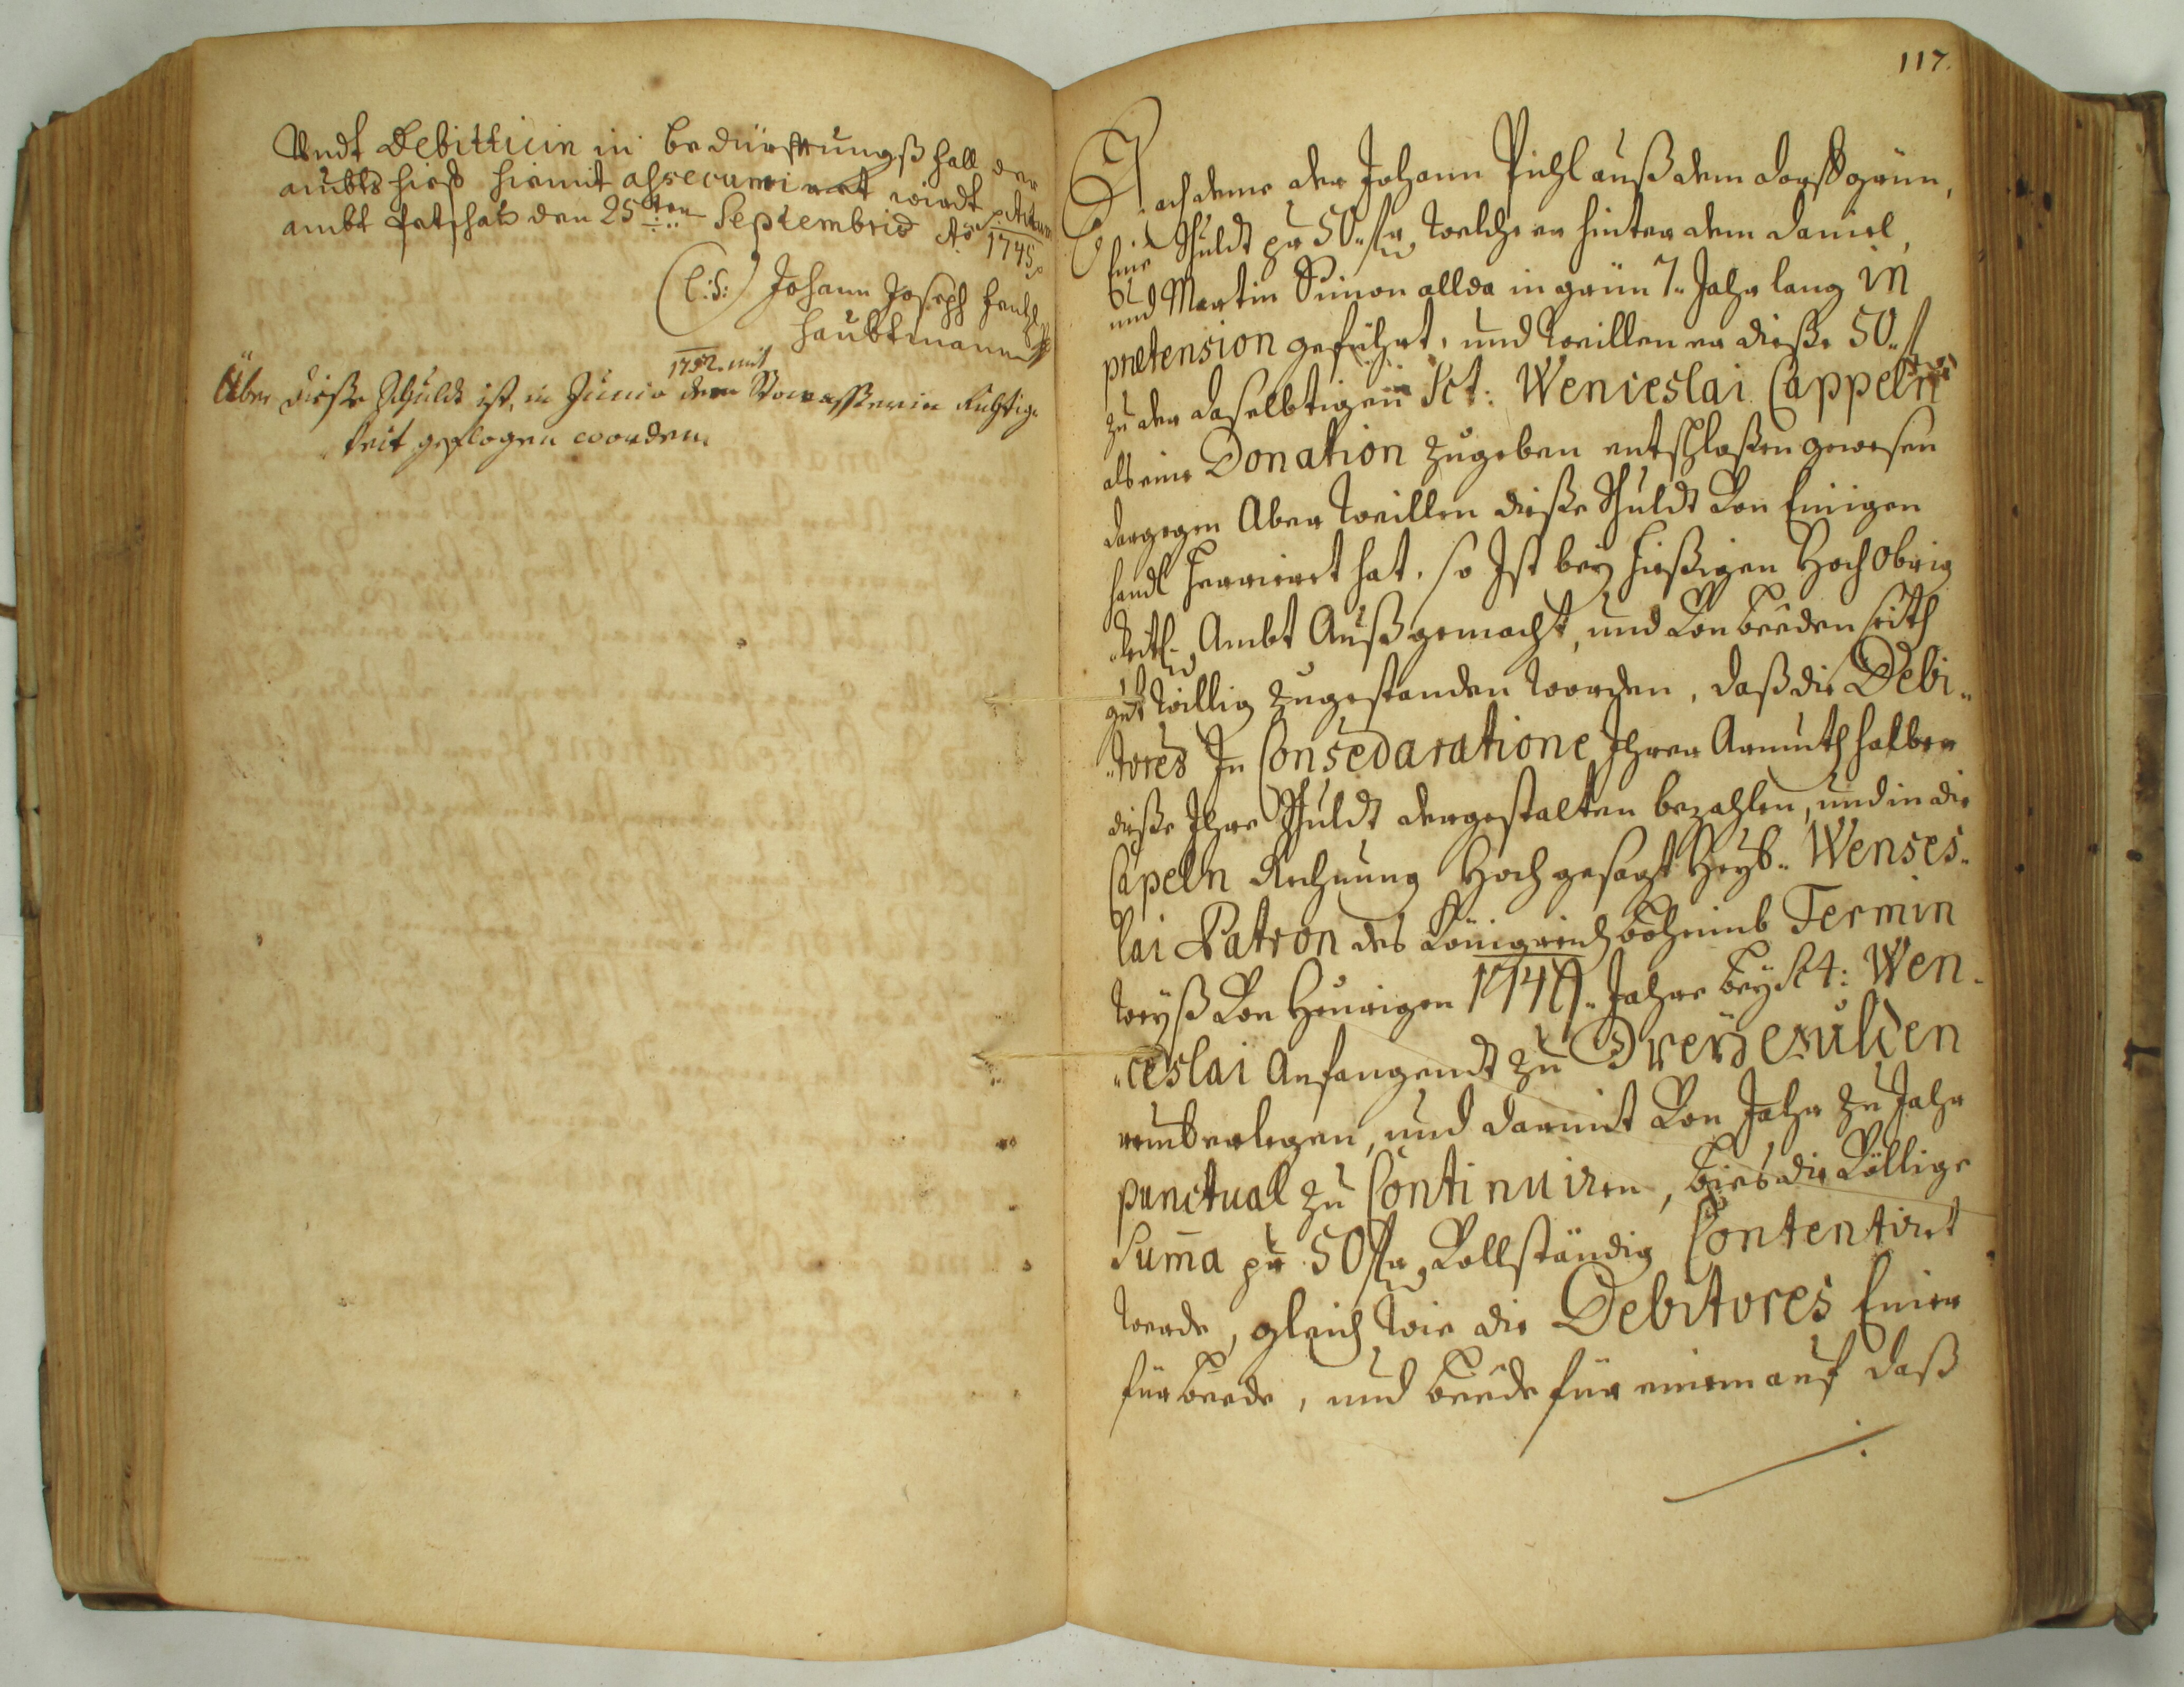 Undt Debitticin in bedürfftungß fall der
ambts hieß hiemit assecuriret wirdt Actum
ambt Petschau den 25ten Septembris Aõ 1745
(L:S:) Johann Joseph
Haubtmann
Über dieße Schuldt ist, in Junio 1752. mit der Richtig-
keit gepflogen worden.
117.
Nachdeme der Johann Pichl auß dem dorff grün,
Eine Schuldt pr 50 fl welche er hinter dem Daniel,
und Martin Simon allda in grün 7. Jahr lang in
prætension geführt, und weillen er dieße 50. fl
zu der daselbstigen Sct: Wenceslai Cappeln
als eine Donation zugeben entschloßen geweßen
dargegen Aber weillen dieße Schuldt Von Einigen
handl herrieret hat, so Ist bey hießigen Hoch Obrig
keitl. Ambt Außgemacht, und Von beeden seith
gutwillig zugestanden worden, daß die Debi„
„tores In Consedaratione Ihrer Armuth halber
dieße Ihre Schuldt dergestalten bezahlen, und in die
Capeln Rechnung Hoch gesagt Heyl. Wenses„
lai Patron des Königreich Böheimb Termin
weyß Von Heurigen 1749. Jahre bey St: Wen„
„ceslai Anfangendt zu Dreygulden
, und darmit Von Jahr zu Jahr
punctual zu Continuiren, bies die Völlige
Suma pr 50 fl Vollständig Contentiret
werde, gleich wie die Debitores Einer
für beede, und beede für einem auf daß